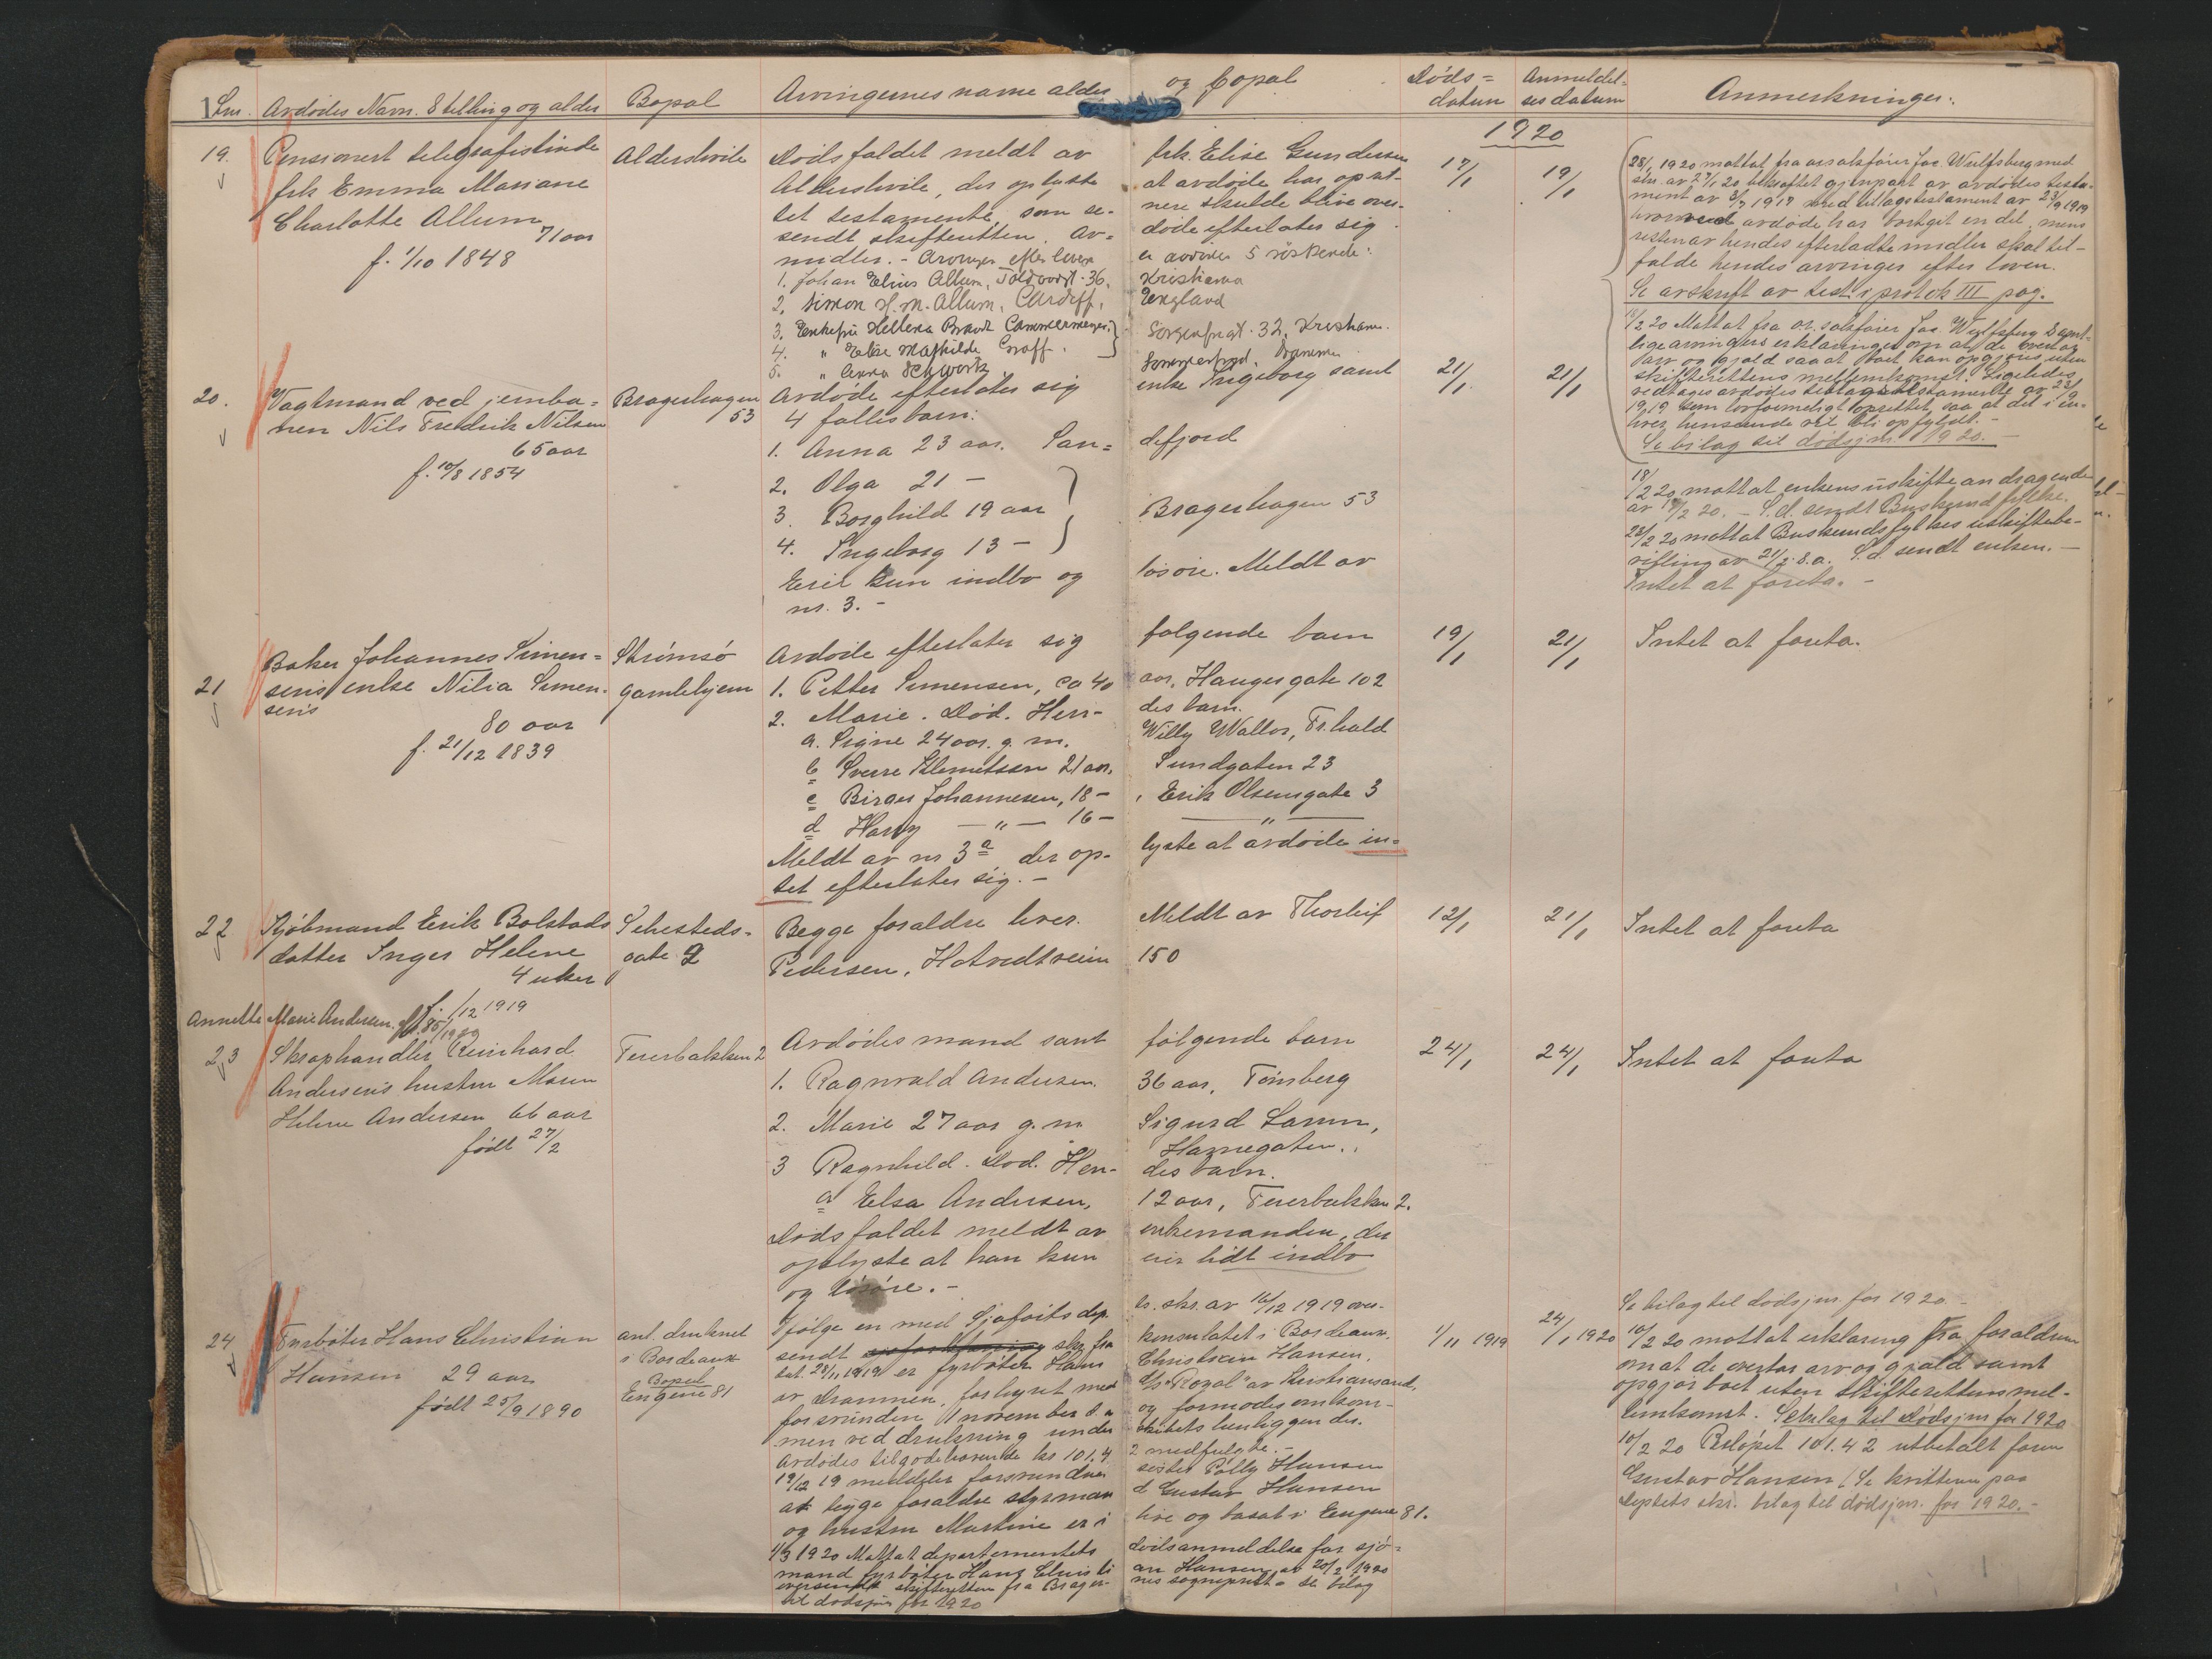 Lnr. Avdødes Navn. Stilling og alder Bopæl Arvingernes navne alder og bopæl Døds= datum Anmeldel= sesdatum Anmerkninger:
1920
19. Pensionert telegrafistinde
frk Emma Mariane
Charlotte Allum
71 aar
f. 1/10 1848
Alderslivile
Dødsfaldet meldt av frk. Elise Gundersen
Alderslivile, der oplyste at avdøde har opret-
tet testamente, som se- nere skulde blive over-
sendt skifteretten. Av= døde efterlater sig
midler. - Arvinger efter loven er avdødes 5 søskende:
1. Johan Elius Allum, Toldbodgt. 36, Kristiania
2. Simon H. M. Allum, Cardiff, England
3. Enkefru Hellena Brandt Cammermeyer, Sorgenfrigt. 32, Kristiania.
4. " Elise Mathilde Graff.
5. " Anna Schwartz
17/1
19/1
28/1 1920 mottat fra orsakfører Jac Wulfsberg med
skr. av 27/1 20 bekræftet gjenpart av avdødes testa-
ment av 8/7 1917 med tillægstestament av 23/9 1919
hvorved avdøde har bortgit en del, mens
resten av hendes efterladte midler skal til-
falde hendes arvinger efter loven.
Se avskrift av test. i protok III pag.
/2 20 Mottat fra or. sakfører Jac. Wulfsberg samt-
lige arvingers erklæringer om at de overtar
arv og gjæld saa at boet kan opgjøres uten
skifterettens mellemkomst. Ligeledes
vedtages avdødes tillægstestamente av 23/9
1919 som lovformeligt oprettet, saa at det i en-
hver henseende vil bli opfyldt. -
Se bilag til dødsjnr. 1920. -
20. Vagtmand ved jernba=
nen Nils Fredrik Nilsen
65 aar
f. 10/8 1854
Bragerhagen
53
Avdøde efterlater sig enke Ingeborg samt
4 fælles barn:
1. Anna 23 aar. San= defjord
2. Olga 21 -
3. Borghild 19 aar Bragerhagen 53
4. Ingeborg 13 -
Eiet kun indbo og løsøre. Meldt av
nr. 3. -
21/1
21/1
18/2 20 mottat enkens uskifteandragende
av 17/2 20. - S.d. sendt Buskerud fylke.
23/2 20 mottat Buskeruds fylkes uskiftebe-
villing av 21/2 s.a. S.d. sendt enken. -
Intet at foreta. -
21 Baker Johannes Simen=
sens enke Nilia Simen-
sens
80 aar
f. 21/12 1839
Strømsø
gamlehjem
Avdøde efterlater sig følgende barn
1. Petter Simensen, ca 40 aar, Haugesgate 102
2. Marie. Død. Hen- des barn.
a. Signe 24 aar. g. m. Willy Wallor, Fr.hald
b Sverre Klemetsen 21 aar, Sundgaten 23
c Birger Johannesen, 18 - , Erik Olsensgate 3
d Harry — " — 16 - — " —
Meldt av nr 3a der op- lyste at avdøde in=
tet efterlater sig. -
19/1
21/1
Intet at foreta.
22 Kjøbmand Erik Bolstads
datter Inger Helene
4 uker
f. /12 1919
Sehesteds-
gate 2
Begge foraldre lever. Meldt av Thorleif
Pedersen, Hotvedtveien 150
12/1
21/1
Intet at foreta
Annette Marie Andersen
23 Skraphandler Reinhard
Andersens hustru Maren
Helene Andersen 66 aar
født 27/2
Feierbakken 2
Avdødes mand samt følgende barn
1. Ragnvald Andersen. 36 aar, Tønsberg
2. Marie 27 aar g. m. Sigurd Larsen,
Havnegaten.
3 Ragnhild. Død. Hen- des barn.
a Elsa Andersen, 12 aar, Feierbakken 2.
Dødsfaldet meldt av enkemanden, der
oplyste at han kun eier lidt indbo
og løsøre. -
24/1
24/1
Intet at foreta
24 Fyrbøter Hans Christian
Hansen 29 aar
født 25/9 1890
ant. druknet
i Bordeaux
Bopæl
Engene 81
Ifølge en med Sjøfartsdep. ts. skr. av 16/12 1919 over-
sendt skr. fra konsulatet i Bordeaux,
dat. 28/11 1919 er fyrbøter Hans Christian Hansen,
av Drammen, forhyret med S/s "Royal" av Kristiansand,
forsvunden 1 november s. a og formodes omkom-
men ved drukning under skibets henliggen der.
Avdødes tilgodehavende kr 101.4 2 medfulgte. -
19/12 19 meddeler forsvundnes søster Polly Hansen
at begge foraldre styrmand Gustav Hansen
og hustru Martine er i live og bosat i Engene 81.
1/3 1920 Mottat departementets dødsanmeldelse for sjø=
mand fyrbøter Hans Christi an Hansen av 20/2 1920
oversendt skifteretten fra Brager- nes sogneprest - se bilag
til dødsjnr for 1920
1/11 1919
24/1 1920
Se bilag til dødsjnr. for 1920. -
10/2 20 mottat erklæring fra foraldrene
om at de overtar arv og gjæld samt
opgjør boet uten skifterettens mel-
lemkomst. Se bilag til dødsjnr for 1920
10/2 20 Beløpet 101.42 utbetalt faren
Gustav Hansen (Se kvittering paa
deptets skr. bilag til dødsjnr. for 1920. -